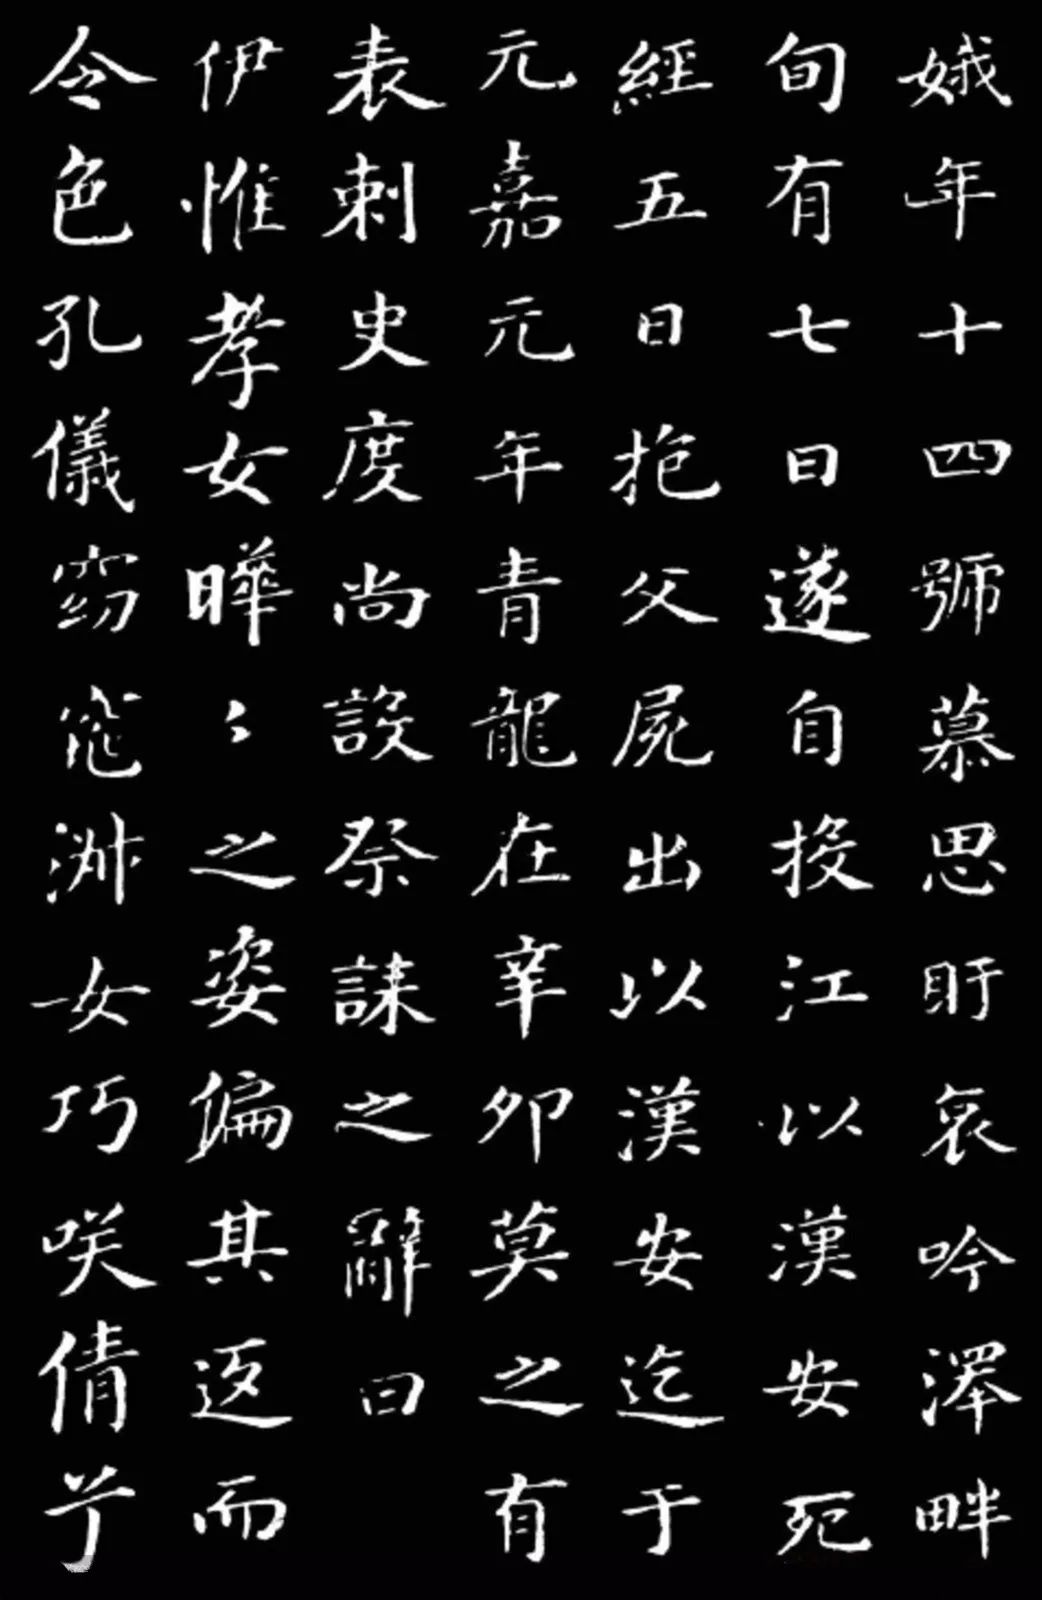 娥年十四號慕思盱哀吟澤畔
旬有七日遂自投江以漢安死
經五日抱父屍出以漢安迄于
元嘉元年青龍在辛卯莫之有
表刺史度尚設祭誄之辭曰
伊惟孝女曄〻之姿偏其返而
令色孔儀窈窕淑女巧咲倩兮